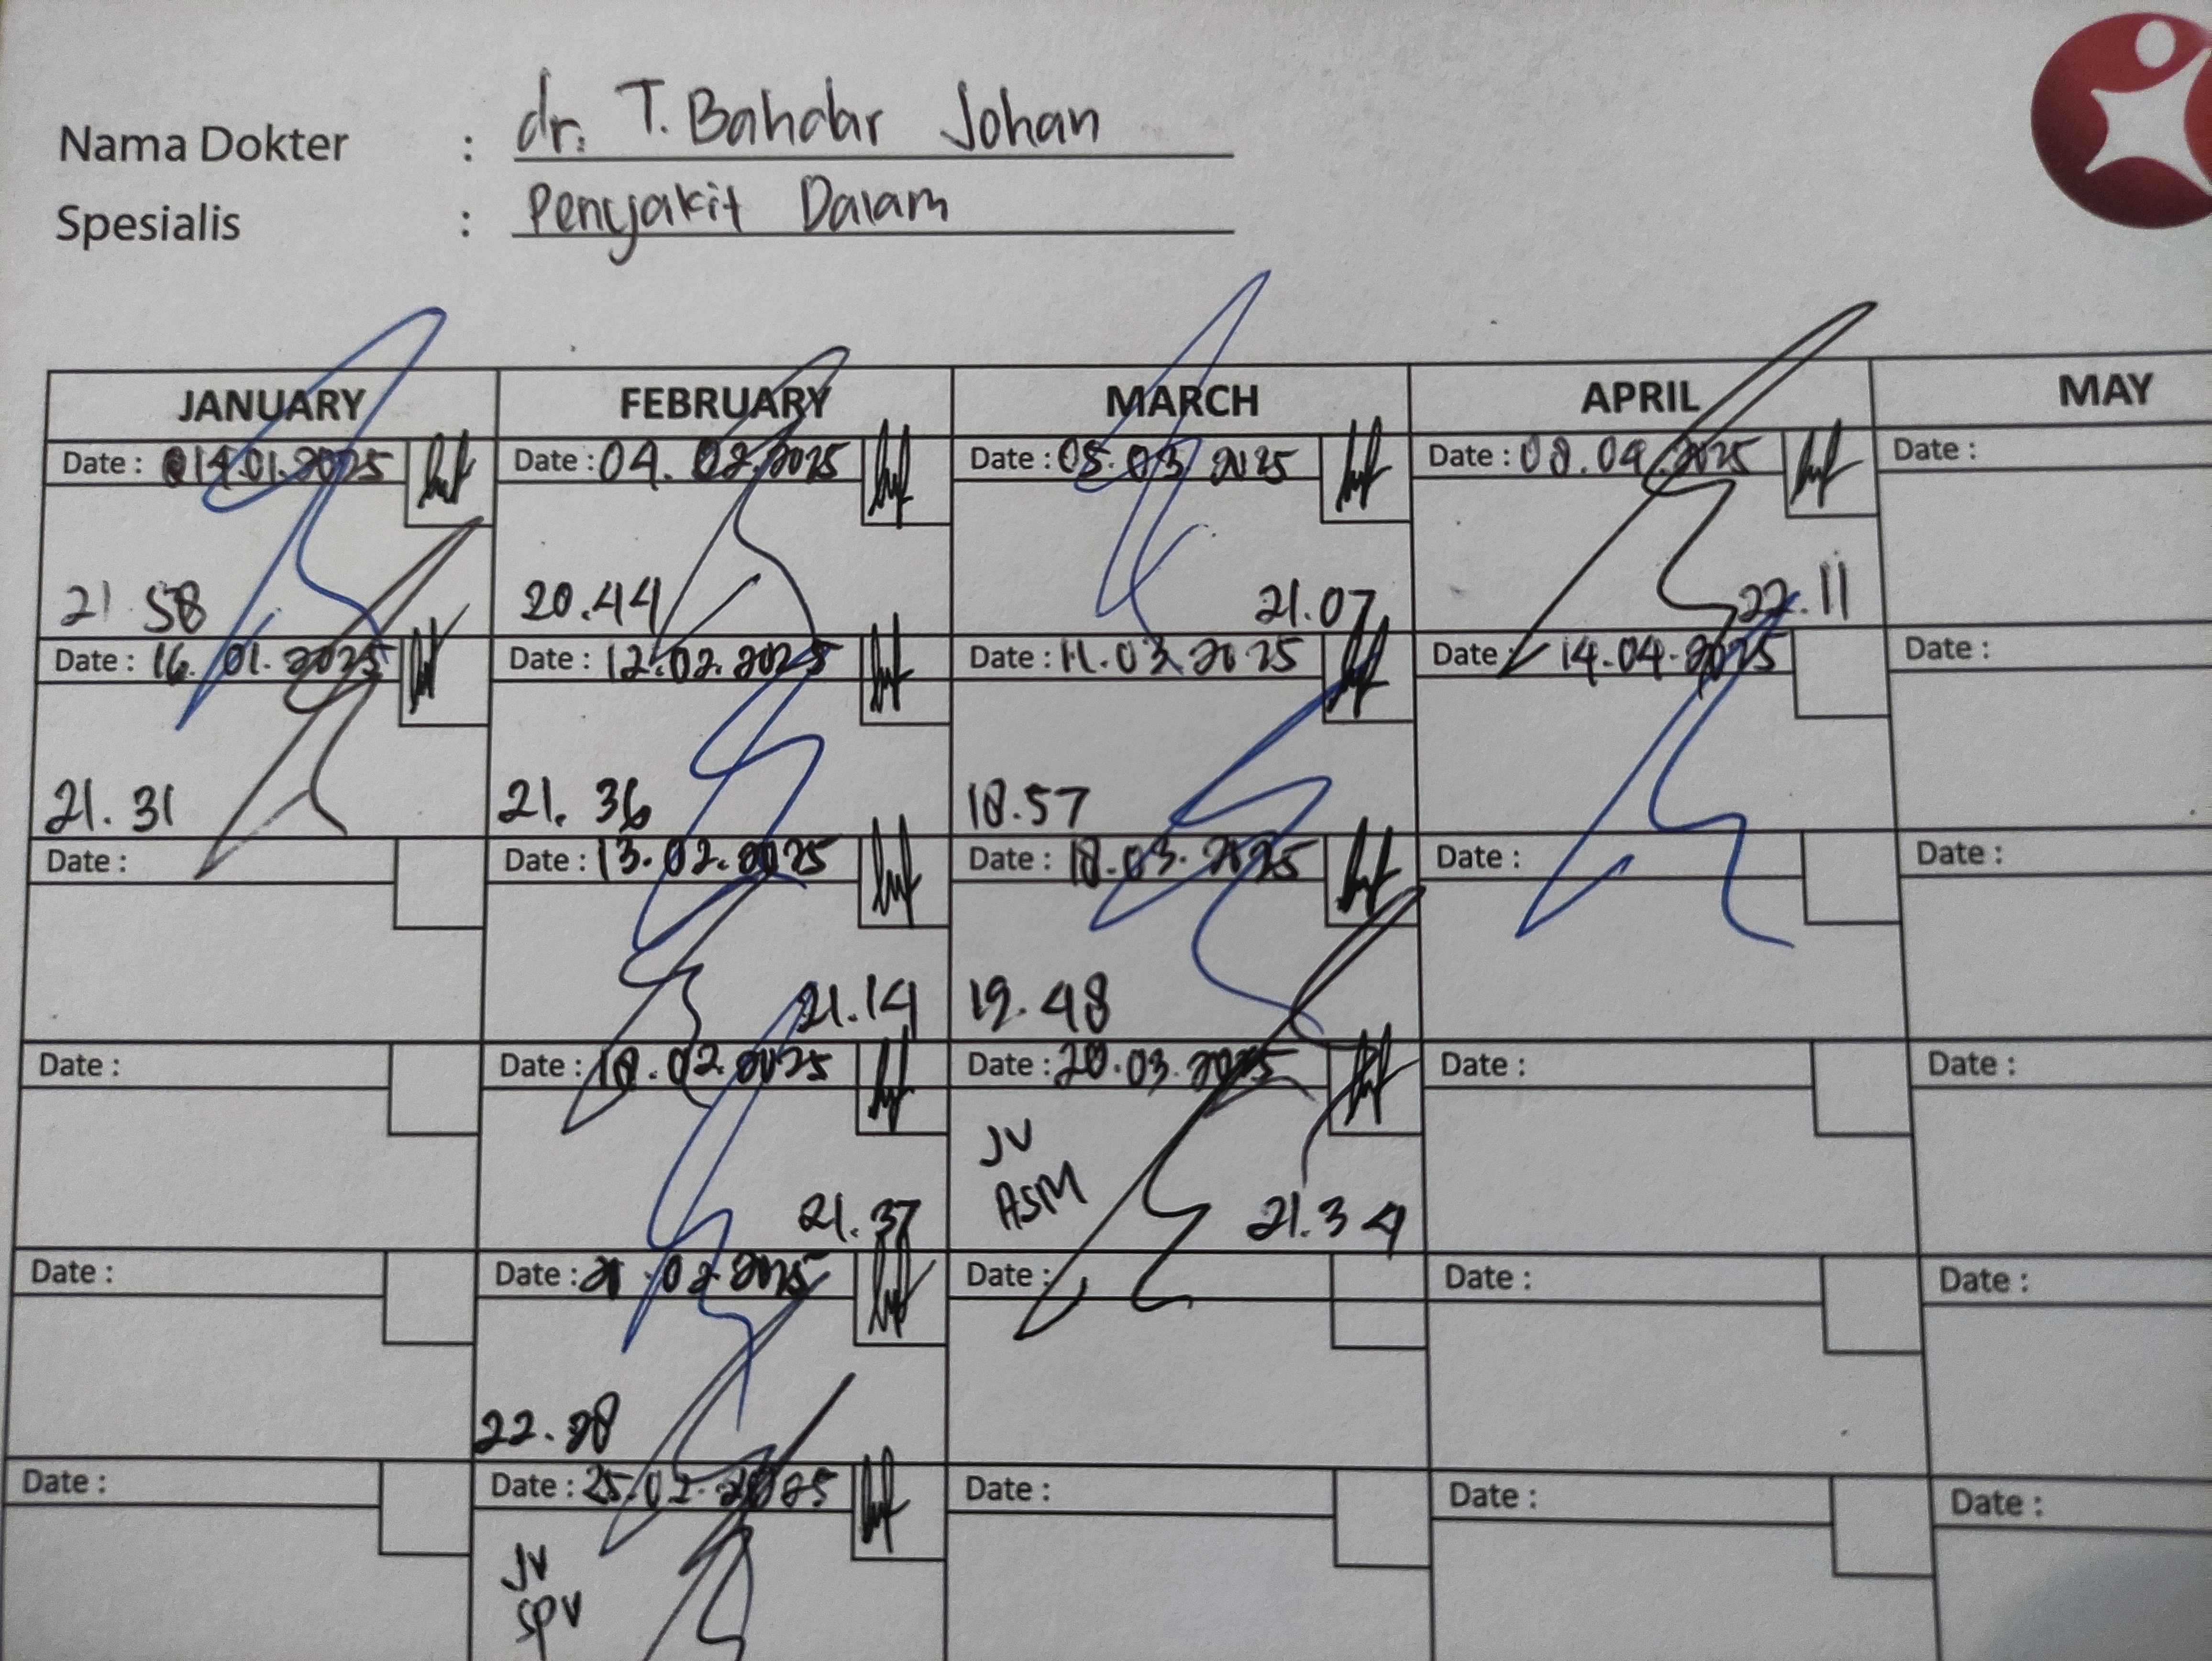 Nama Dokter : dr. T. Bahdar Johan
Spesialis : Penyakit Dalam
JANUARY FEBRUARY MARCH APRIL MAY
Date : 14.01.2025 Date : 04.02.2025 Date : 05.03.2025 Date : 08.04.2025 Date :
21.58 20.44 21.07 22.11
Date : 16.01.2025 Date : 12.02.2025 Date : 11.03.2025 Date : 14.04.2025 Date :
21.31 21.36 18.57
Date : Date : 13.02.2025 Date : 18.03.2025 Date : Date :
21.14 19.48
Date : Date : 18.02.2025 Date : 20.03.2025 Date : Date :
JV
ASM
21.37 21.34
Date : Date : 21.02.2025 Date : Date : Date :
22.28
Date : Date : 25.02.2025 Date : Date : Date :
JV
SPV